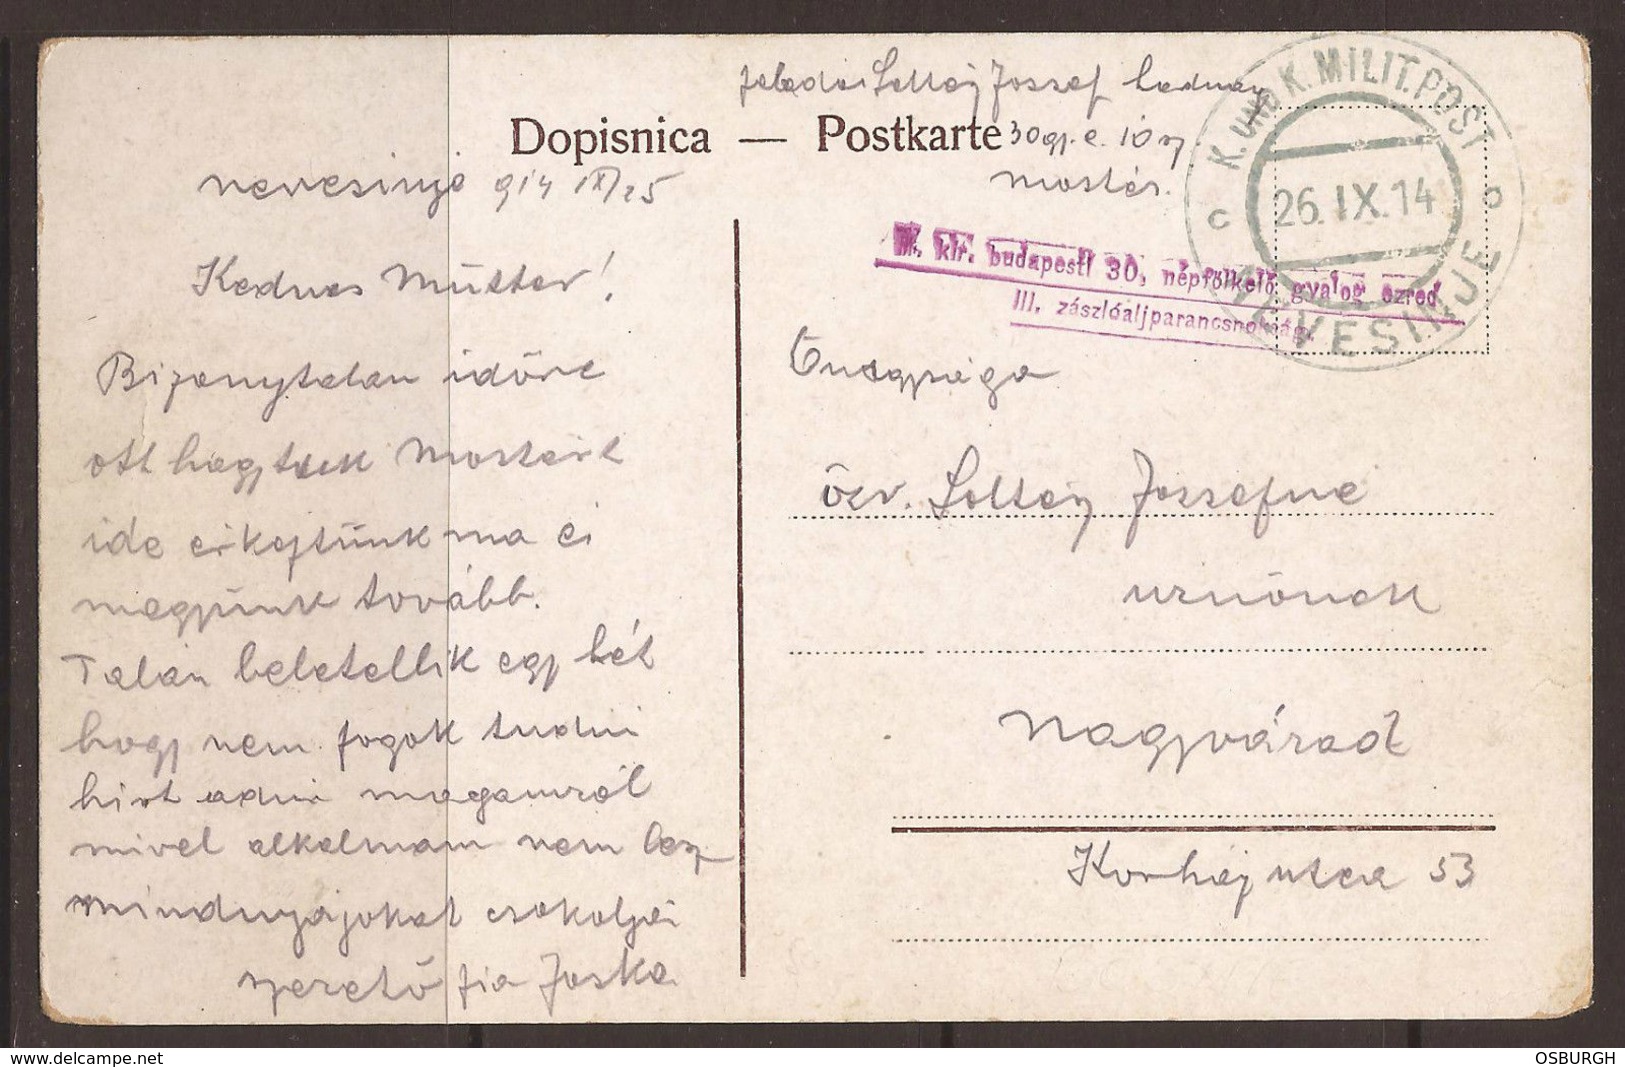 Jossef hadnagy
Dopisnica — Postkarte
30 gy. e. 10 sz.
Mostar.
nevesinje 914 IX/25
K. UND K. MILIT. POST
c 26.IX.14 b
NEVESINJE
M. kir. budapesti 30. népfölkelő gyalog ezred
III. zászlóaljparancsnokság.
Kedves Mutter!
Bizonytalan időre
ott hagytuk Mostart
ide érkeztünk ma és
megyünk tovább.
Talán beletellik egy hét
hogy nem fogok tudni
hirt adni magamról
mivel alkalmam nem lesz
mindnyájokat csokolja
szerető fia Joska
Önagysága
özv. Jossefne
urnőnek
Nagyvárad
utca 53
delcampe.net
OSBURGH